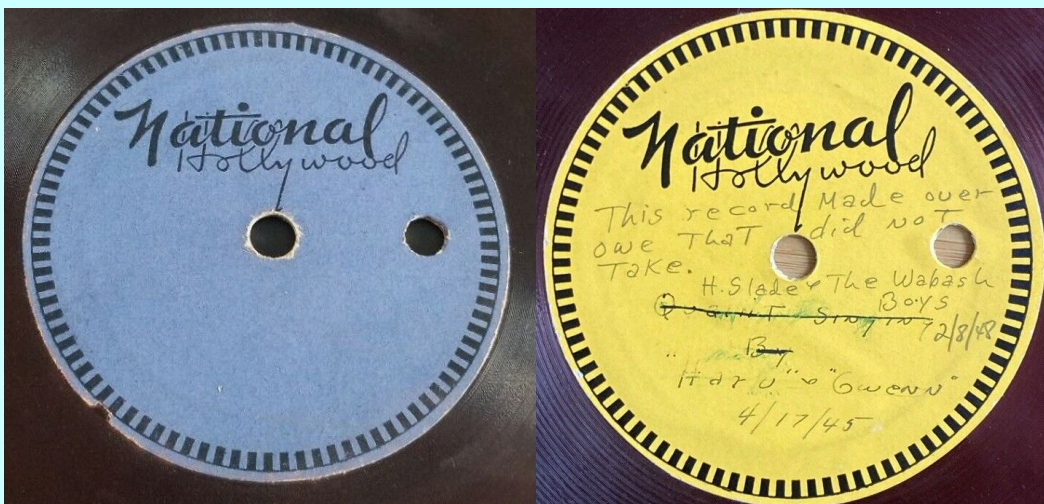 National
Hollywood
National
Hollywood
This record Made over
owe That did not
Take.
H. Slade & The Wabash
Boys
Singing
2/8/48
" By
"Gwenn"
4/17/45